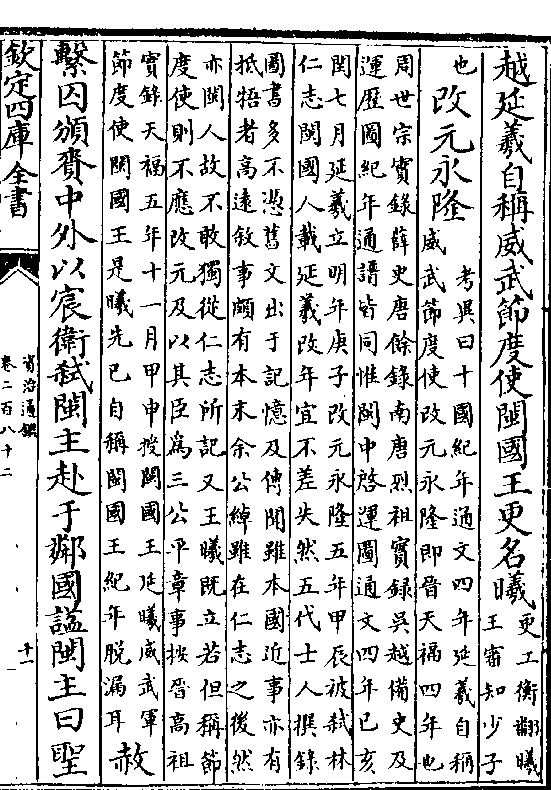 越延羲自稱威武節度使閩國王更名曦
更工衡翻曦
王審知少子
也改元永隆
考異曰十國紀年通文四年延羲自稱
威武節度使改元永隆即晉天福四年也
周世宗實録薛史唐餘録南唐烈祖實録吳越備史及
運歴圖紀年通譜皆同惟閩中啓運圖通文四年已亥
閏七月延羲立明年庚子改元永隆五年甲辰被弑林
仁志閩國人載延羲改年宜不差失然五代士人撰録
圖書多不憑舊文出于記憶及傳聞雖本國近事亦有
抵牾者高遠敘事頗有本末余公綽雖在仁志之後然
亦閩人故不敢獨從仁志所記又王曦既立若但稱節
度使則不應改元及以其臣為三公平章事按晉高祖
實録天福五年十一月甲申授閩國王延曦威武軍
節度使閩國王是曦先已自稱閩國王紀年脱漏耳
赦
繫囚頒賚中外以宸衛弑閩主赴于鄰國諡閩主曰聖
欽定四庫全書
資治通鑑
卷二百八十二
十一